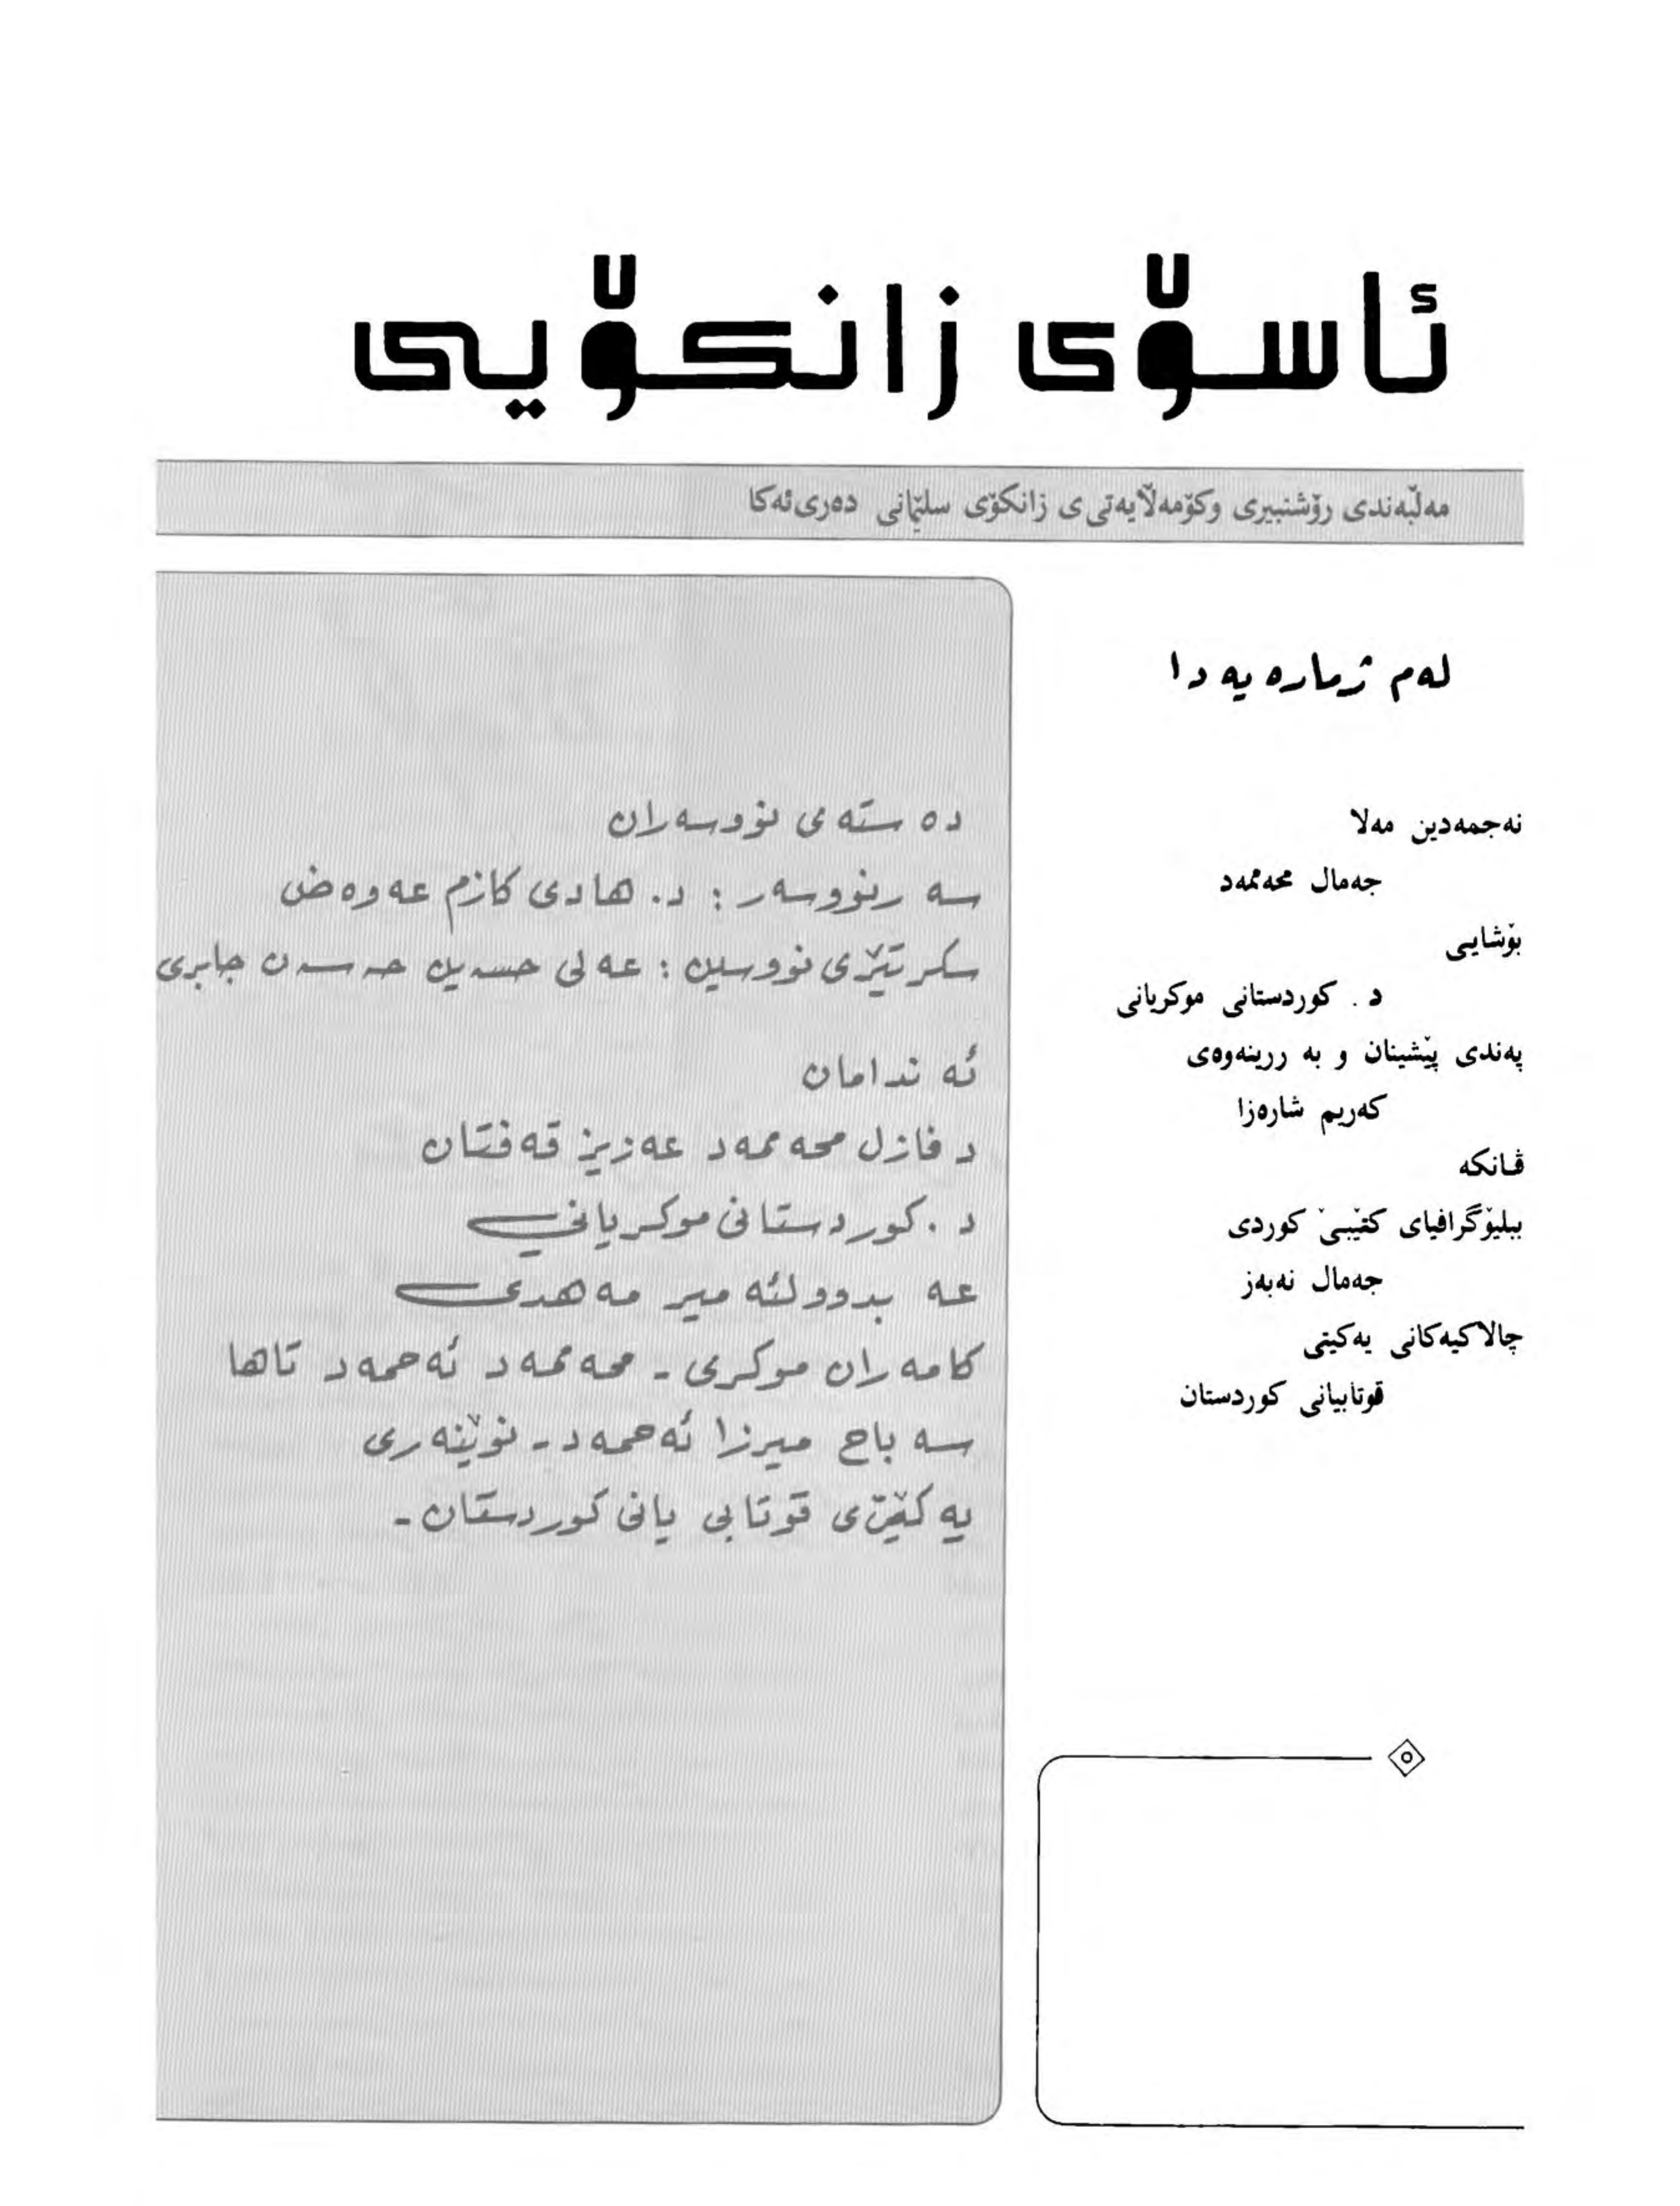 ئاسۆی زانکۆیی
مەڵبەندی رۆشنبیری وکۆمەڵایەتی ی زانکۆی سلێمانی دەری ئەکا
لەم ژمارە یە دا
نەجمەدین مەلا
جەمال محەممەد
بۆشایی
د . کوردستانی موکریانی
پەندی پێشینان و بە ررینەوەی
کەریم شارەزا
ڤانکە
ببلیۆگرافیای کتێبێ کوردی
جەمال نەبەز
چالاکیەکانی یەکیتی
قوتابیانی کوردستان
دە ستەی نووسەران
سە رنووسەر : د. هادی کازم عەوەض
سکرتێری نووسین : عەلی حسەین حەسەن جابری
ئە ندامان
د فازل محەممەد عەزیز قەفتان
د . کوردستانی موکریانی
عە بدوولئەمیر مەهدی
کامەران موکری - محەممەد ئەحمەد تاها
سە باح میرزا ئەحمەد - نوێنەری
یە کێتی قوتابی یانی کوردستان -